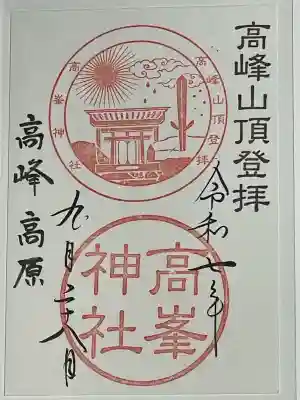 高峰山頂登拝
高峯神社
高峰山頂登拝
令和七年
高峯神社
九月二八日
高峰高原